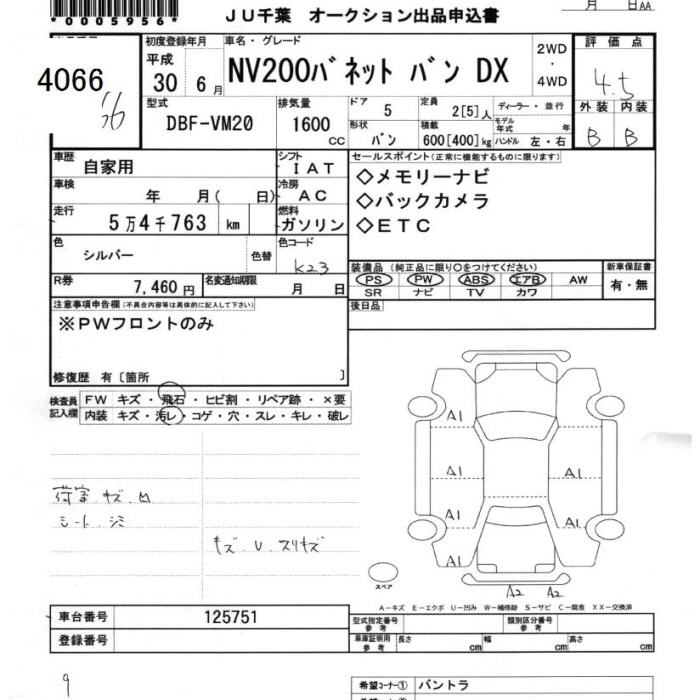 *0005956*
JU千葉 オークション出品申込書
月 日AA
初度登録年月 車名・グレード 2WD・4WD 評価点
4066 平成30 6月 NV200バネット バン DX 4.5
型式 排気量 ドア 5 定員 2[5]人 ディーラー・並行 外装 内装
DBF-VM20 1600cc 形状 バン 積載 600[400]kg モデル年式 年 ハンドル 左・右 B B
車歴 自家用 シフト IAT セールスポイント(正常に機能するものに限ります)
車検 年 月( 日) 冷房 AC ◇メモリーナビ
走行 5万4千763 km 燃料 ガソリン ◇バックカメラ
◇ETC
色 シルバー 色替 色コード K23
装備品(純正品に限り○をつけてください) 新車保証書
R券 7,460円 名変通知期限 月 日 PS PW ABS エアB AW 有・無
SR ナビ TV カワ
注意事項申告欄(不具合内容等は具体的に記入して下さい) 後日品
※PWフロントのみ
修復歴 有〔箇所 〕
検査員記入欄 FW キズ・飛石・ヒビ割・リペア跡・×要
内装 キズ・汚レ・コゲ・穴・スレ・キレ・破レ
A1
A1 A1
A1 A1
A1
A2 A2
荷室 キズ.M
シート シミ
キズ.U.スリキズ
スペア
A-キズ E-エクボ U-凹み W-補修跡 S-サビ C-腐食 XX-交換済
車台番号 125751 型式指定番号 参考 類別区分番号 参考
登録番号 車庫証明用 参考 長さ cm 幅 cm 高さ cm
9
希望コーナー① バントラ